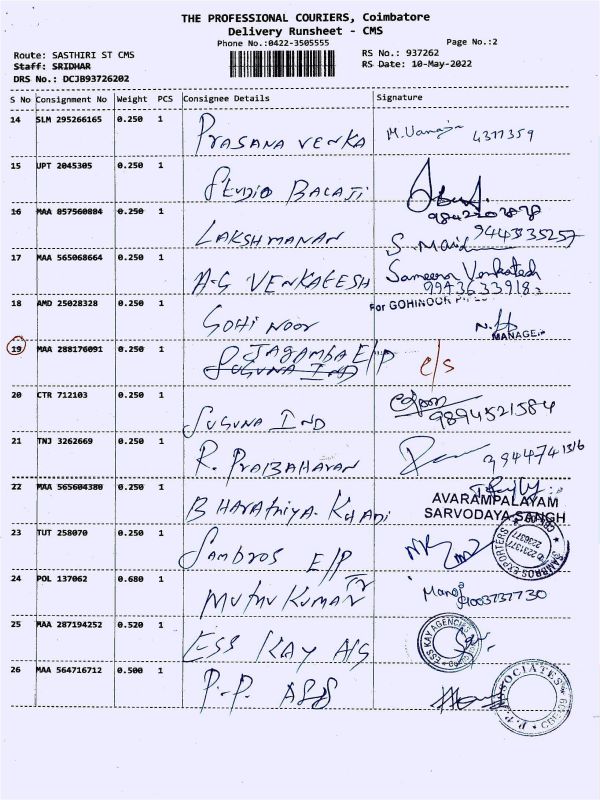 THE PROFESSIONAL COURIERS, Coimbatore
Delivery Runsheet - CMS
Phone No.:0422-3505555
Page No.:2
Route: SASTHIRI ST CMS
RS No.: 937262
Staff: SRIDHAR
RS Date: 10-May-2022
DRS No.: DCJB93726202
S No Consignment No Weight PCS Consignee Details Signature
14 SLM 295266165 0.250 1 PRASANA VENKA 4377359
15 UPT 2045305 0.250 1 STUDIO BALAJI
16 MAA 857560884 0.250 1 LAKSHMANAN 9443335257
17 MAA 565068664 0.250 1 A-G VENKATESH Sameera Venkatesh
18 AMD 25028328 0.250 1 GOHI NOOR For GOHINOOR
MANAGER
19 MAA 288176091 0.250 1 JAGAMBA E/P c/s
SUGUNA IND
20 CTR 712103 0.250 1 SUGUNA IND 9894521584
21 TNJ 3262669 0.250 1 R. PRABAHARAN
22 MAA 565604380 0.250 1 BHARATHIYA. KHADI AVARAMPALAYAM
SARVODAYA SANGH
23 TUT 258070 0.250 1 SAMBROS E/P SAMBROS EXPORTERS
24 POL 137062 0.680 1 MUTHU KUMAN Manoj
25 MAA 287194252 0.520 1 ESS KAY A/G ESS KAY AGENCIES
26 MAA 564716712 0.500 1 P.P. ASS P.P. ASSOCIATES